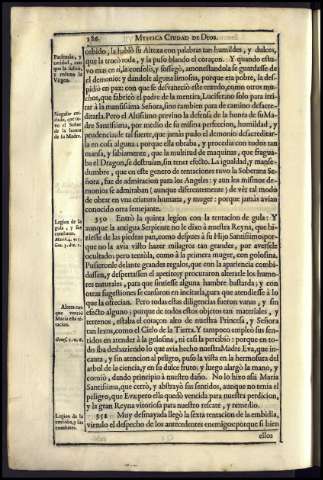 186 MYSTICA CIUDAD DE DIOS.
cebido, la habló su Alteza con palabras tan humildes, y dulces,
que la trocò toda, y la puso blando el coraçon. Y quando estu-
vo mas en si, la consolò, y sossegò, amonestandola se guardasse de
el demonio; y dandole alguna limosna, porque era pobre, la des-
pidiò en paz: con que se
maria, Lucifer no solo para
tar à la mansissima Señora, sino tambien para de camino desacre-
ditarla. Pero el Altissimo previno la defensa de la honra de su Ma-
dre Santissima, por medio de su misma perfeccion, humildad, y
prudencia; de tal suerte, que jamàs pudo el demonio desacreditar-
la en cosa alguna: porque ella obraba, y procedia con todos tan
mansa, y sabiamente, que la multitud de maquinas, que fragua-
ba el Dragon, se destruian, sin tener efecto. La igualdad, y manse-
dumbre, que en este genero de tentaciones tuvo la Soberana Se-
ñora, fue de admiracion para los Angeles; y aun los mismos de-
monios se admiraban (aunque diferentemente) de vèr tal modo
de obrar en una criatura humana, y muger: porque jamàs avian
conocido otra semejante.
350 Entrò la quinta legion con la tentacion de gula: Y
aunque la antigua Serpiente no le dixo à nuestra Reyna, que hi-
ziesse de las piedras pan, como despues à su Hijo Santissimo; por-
que no la avia visto hazer milagros tan grandes, por averse
ocultado: pero tentòla, como à la primera muger, con golosina.
Pusieronle delante grandes regalos, que con la apariencia combi-
dassen, y despertassen el apetito; y procuraron alterarle los humo-
res naturales, para que sintiesse alguna hambre bastarda; y con
otras sugestiones se cansaron en incitarla, para que atendiesse à lo
que la ofrecian. Pero todas estas diligencias fueron vanas, y sin
efecto alguno; porque de todos estos objetos tan materiales, y
terrenos, estaba el coraçon alto de nuestra Princesa, y Señora
tan lexos, como el Cielo de la Tierra. Y tampoco empleò sus sen-
tidos en atender à la golosina, ni casi la percibiò: porque en to-
do iba deshaziendo lo que avia hecho nuestra Madre Eva, que in-
cauta, y sin atencion al peligro, puso la vista en la hermosura del
arbol de la ciencia, y en su dulce fruto; y luego alargò la mano, y
comiò, dando principio à nuestro daño. No lo hizo assi Maria
Santissima, que cerrò, y abstrayò sus sentidos, aunque no tenia el
peligro, que Eva: pero ella quedò vencida para nuestra perdicion,
y la gran Reyna vitoriosa para nuestro rescate, y remedio.
351 Muy desmayada llegò la sexta tentacion de la embidia,
viendo el despecho de los antecedentes enemigos; porque si bien
ellos
Legion de la
gula; y sus
combates.
Legion de la
embidia, y sus
combates.